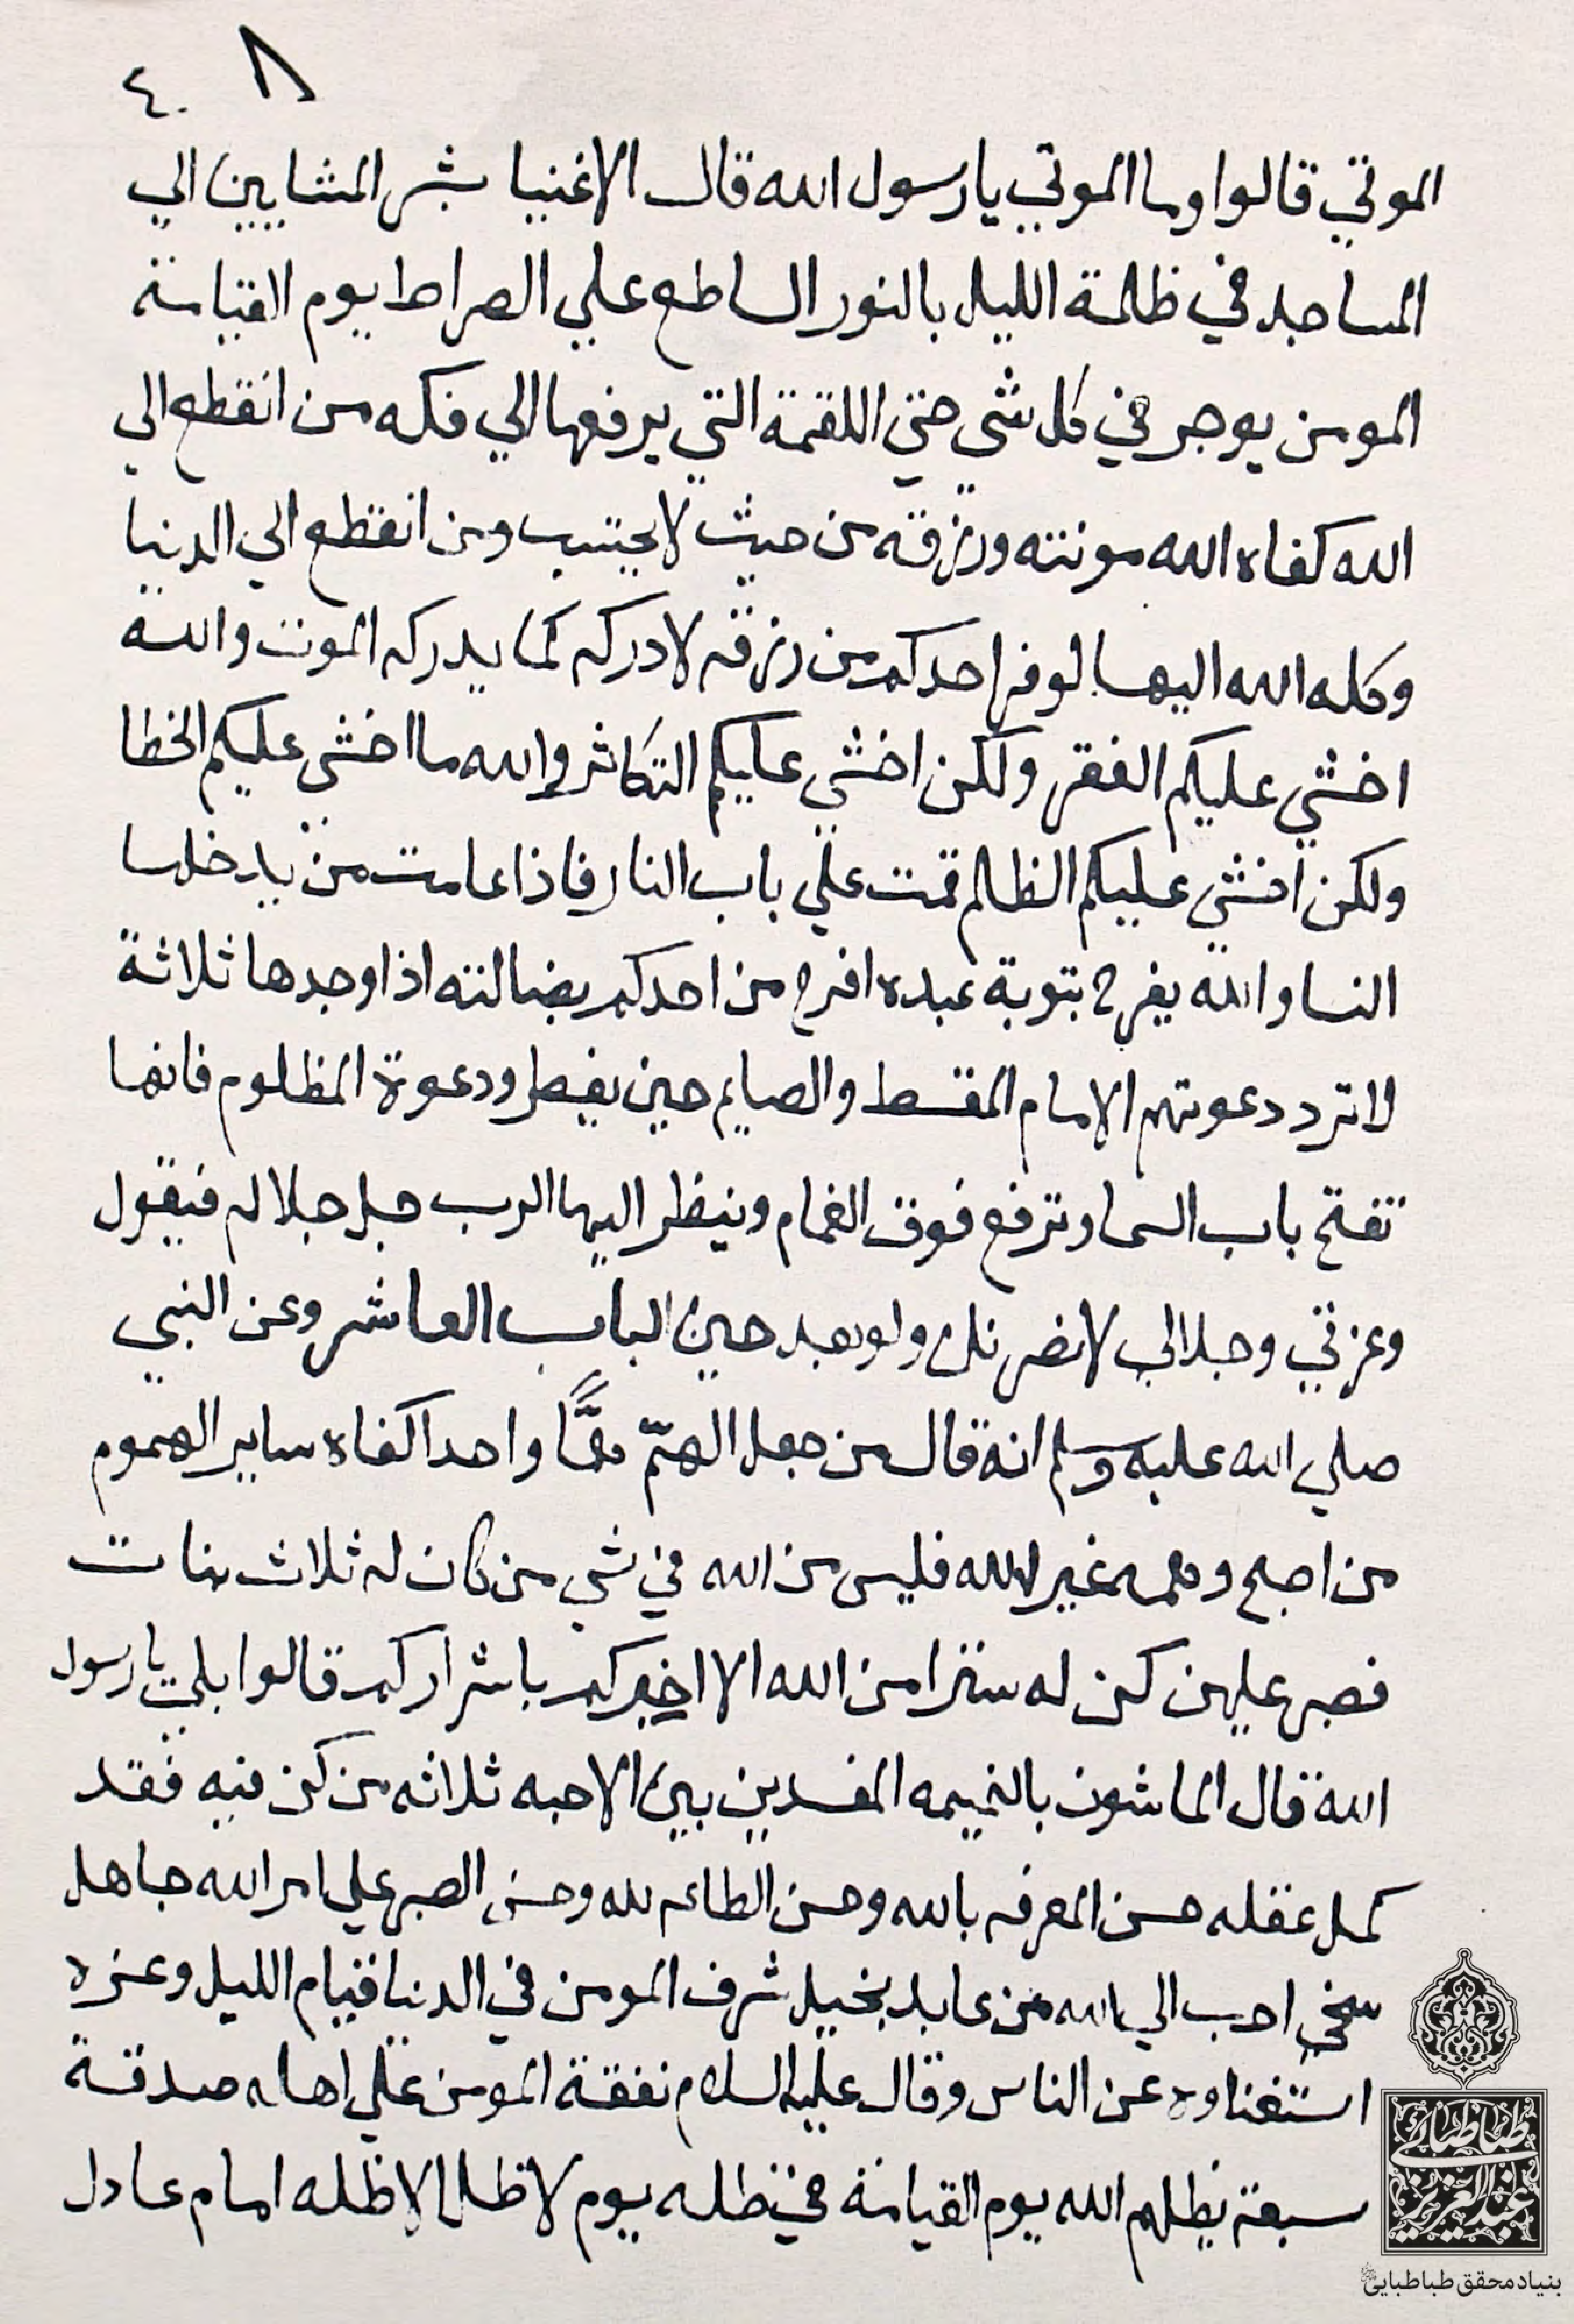 ٤٠ ٨
الموتي قالوا وما الموتي يا رسول الله قال الاغنيا بشر المشايين الي
المساجد في ظلمة الليل بالنور الساطع علي الصراط يوم القيامة
المومن يوجر في كل شي حتي اللقمة التي يرفعها الي فكه من انقطع الي
الله كفاه الله مونته ورزقه من حيث لا يحتسب ومن انقطع الي الدنيا
وكله الله اليها لو فر احدكم من رزقه لادركه كما يدركه الموت والله
اخشي عليكم الفقر ولكن اخشي عليكم التكاثر والله ما اخشي عليكم الخطا
ولكن اخشي عليكم الظلم قمت علي باب النار فاذا عامت من يدخلها
النسا والله يفرح بتوبة عبده افرح من احدكم بضالته اذا وجدها ثلاثة
لا ترد دعوتهم الامام المقسط والصايم حين يفطر ودعوة المظلوم فانها
تفتح باب السما وترفع فوق الغمام وينظر اليها الرب جل جلاله فيقول
وعزتي وجلالي لانصرنك ولو بعد حين الباب العاشر وعن النبي
صلي الله عليه وسلم انه قال من جعل الهمّ همًّا واحدا كفاه ساير الهموم
من اصبح وهمه غير الله فليس من الله في شي من كان له ثلاث بنات
فصبر عليهن كن له سترا من الله الا اخبركم باشراركم قالوا بلي يا رسول
الله قال الماشون بالنميمه المفسدين بين الاحبه ثلاثه من كن فيه فقد
كمل عقله حسن المعرفه بالله وحسن الطاعه لله وحسن الصبر علي امر الله جاهل
سخي احب الي الله من عابد بخيل شرف المومن في الدنيا قيام الليل وعزه
استغناوه عن الناس وقال عليه السلام نفقة المومن علي اهله صدقة
سبعة يظلهم الله يوم القيامة في ظله يوم لا ظل الا ظله امام عادل
طباطبائي
عبدالعزيز
بنیاد محقق طباطبایی